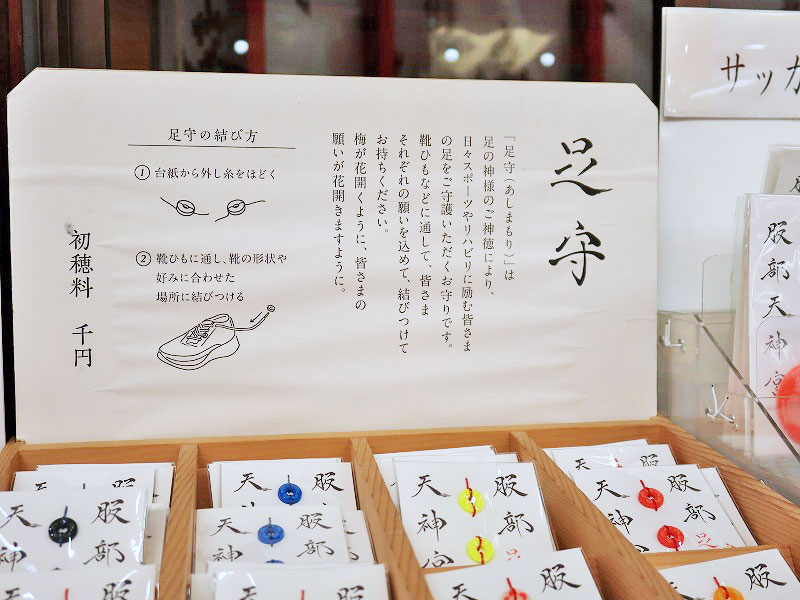 足守
「足守(あしまもり)」は
足の神様のご神徳により、
日々スポーツやリハビリに励む皆さま
の足をご守護いただくお守りです。
靴ひもなどに通して、皆さま
それぞれの願いを込めて、結びつけて
お持ちください。
梅が花開くように、皆さまの
願いが花開きますように。
足守の結び方
① 台紙から外し糸をほどく
② 靴ひもに通し、靴の形状や
好みに合わせた
場所に結びつける
初穂料 千円
サッカ
服部天神宮
服部
天神
服部
天神
服部
天神
服部
天神宮
足
服部
天神
足
服
天
服
天
服
天